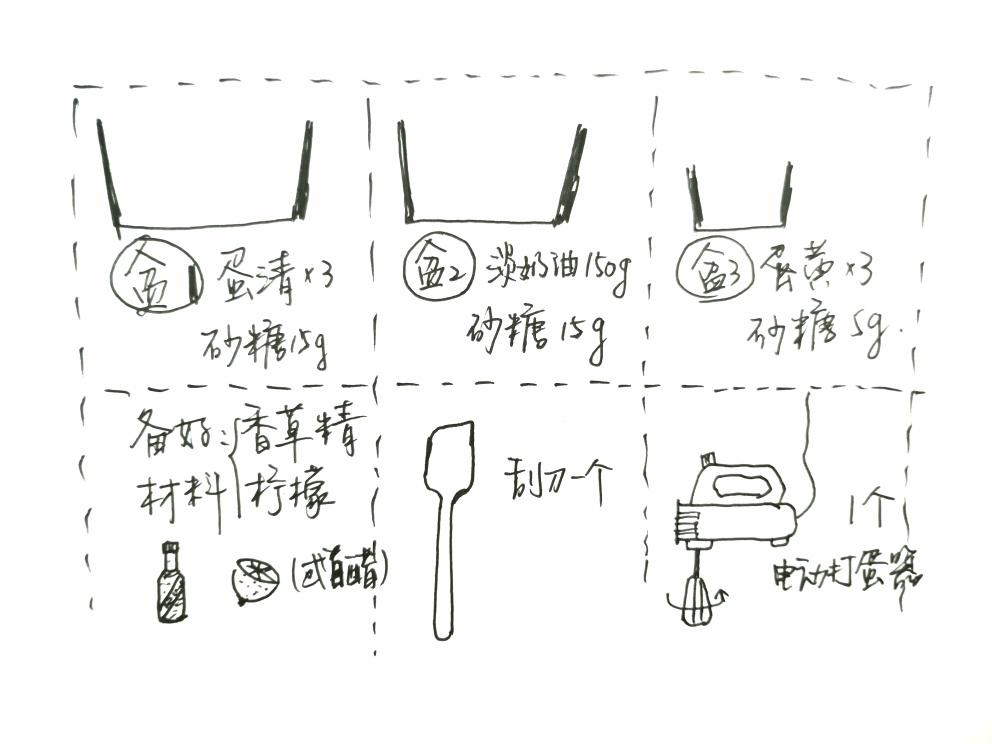 盆1 蛋清×3
砂糖15g
盆2 淡奶油150g
砂糖15g
盆3 蛋黄×3
砂糖5g.
备好: 香草精
材料 柠檬
(或白醋)
刮刀一个
1个
电动打蛋器